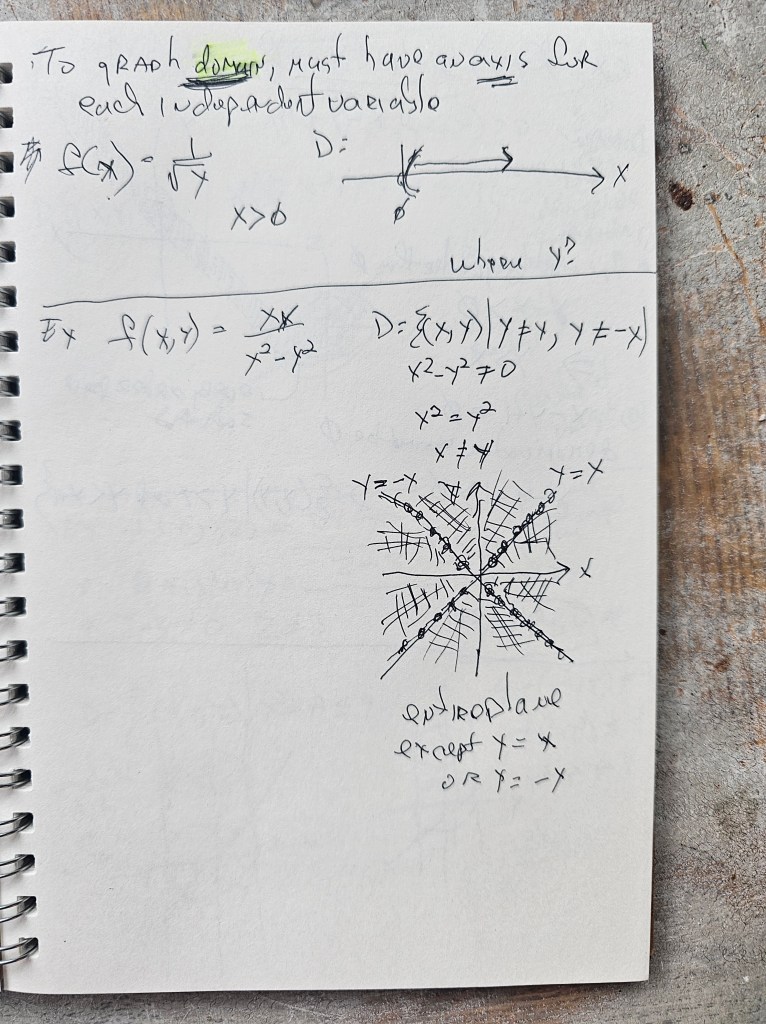 To graph domain, must have an axis for
each independent variable
f(x) = 1/√x D: x
x>0 0
where y?
Ex f(x,y) = xy/(x²-y²) D={(x,y)|y≠x, y≠-x}
x²-y²≠0
x²=y²
x≠y
y=-x y=x
x
entire plane
except y=x
or y=-x